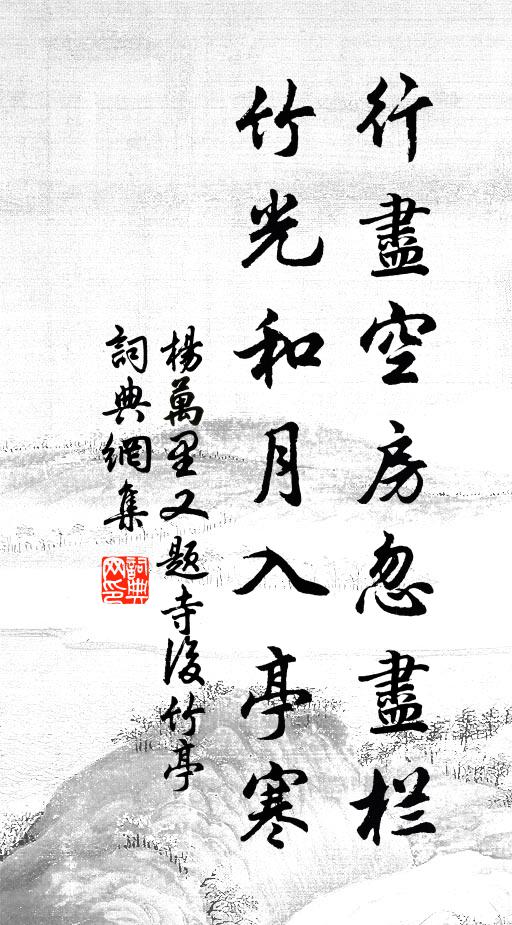 行盡空房忽盡栏
竹光和月入亭寒
楊萬里又题寺後竹亭
詞典網集
詞典网印